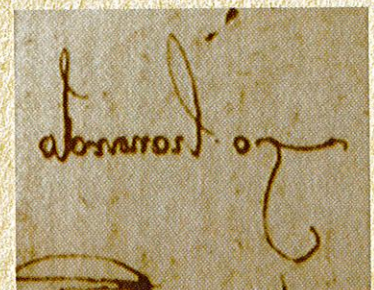 yo lionardo